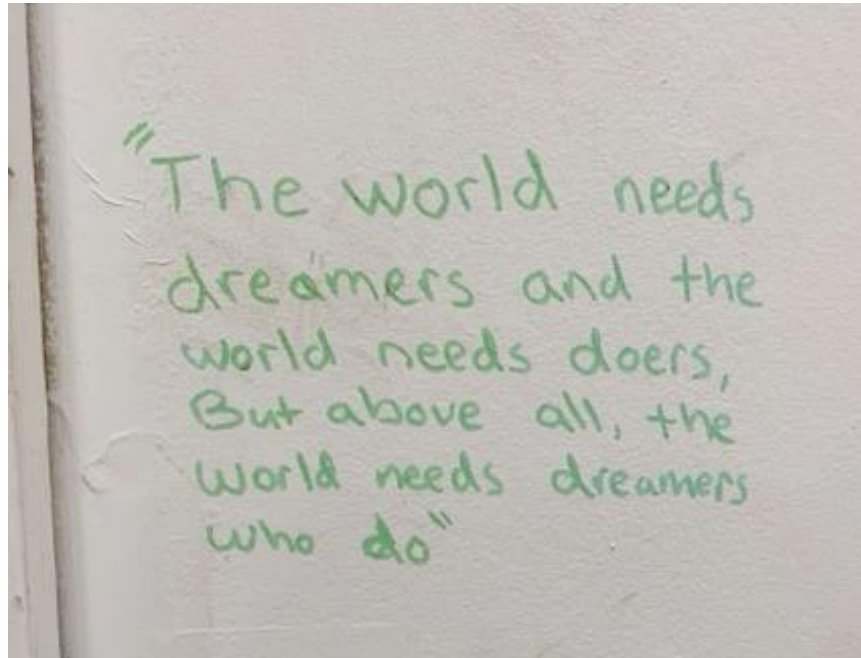 "The world needs
dreamers and the
world needs doers,
But above all, the
world needs dreamers
who do"